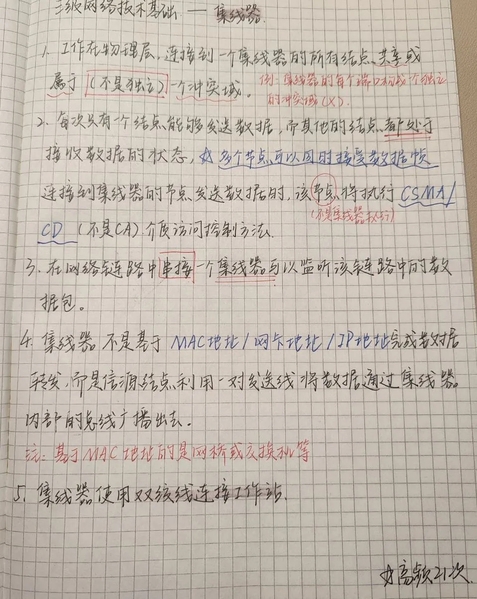 三级网络技术基础 —— 集线器.
1. 工作在物理层,连接到一个集线器的所有结点共享或
属于(不是独立)一个冲突域。例:集线器的每个端口构成个独立
的冲突域(X).
2. 每次只有一个结点能够发送数据,而其他的结点都处于
接收数据的状态,☆多个节点可以同时接受数据帧
连接到集线器的节点发送数据时,该节点将执行CSMA/
(不是集线器执行)
CD(不是CA)介质访问控制方法.
3. 在网络链路中串接一个集线器可以监听该链路中的数
据包。
4. 集线器不是基于MAC地址/网卡地址/IP地址完成数据
转发,而是信源结点利用一对发送线将数据通过集线器
内部的总线广播出去。
注:基于MAC地址的是网桥或交换机等
5. 集线器使用双绞线连接工作站.
☆高频21次.